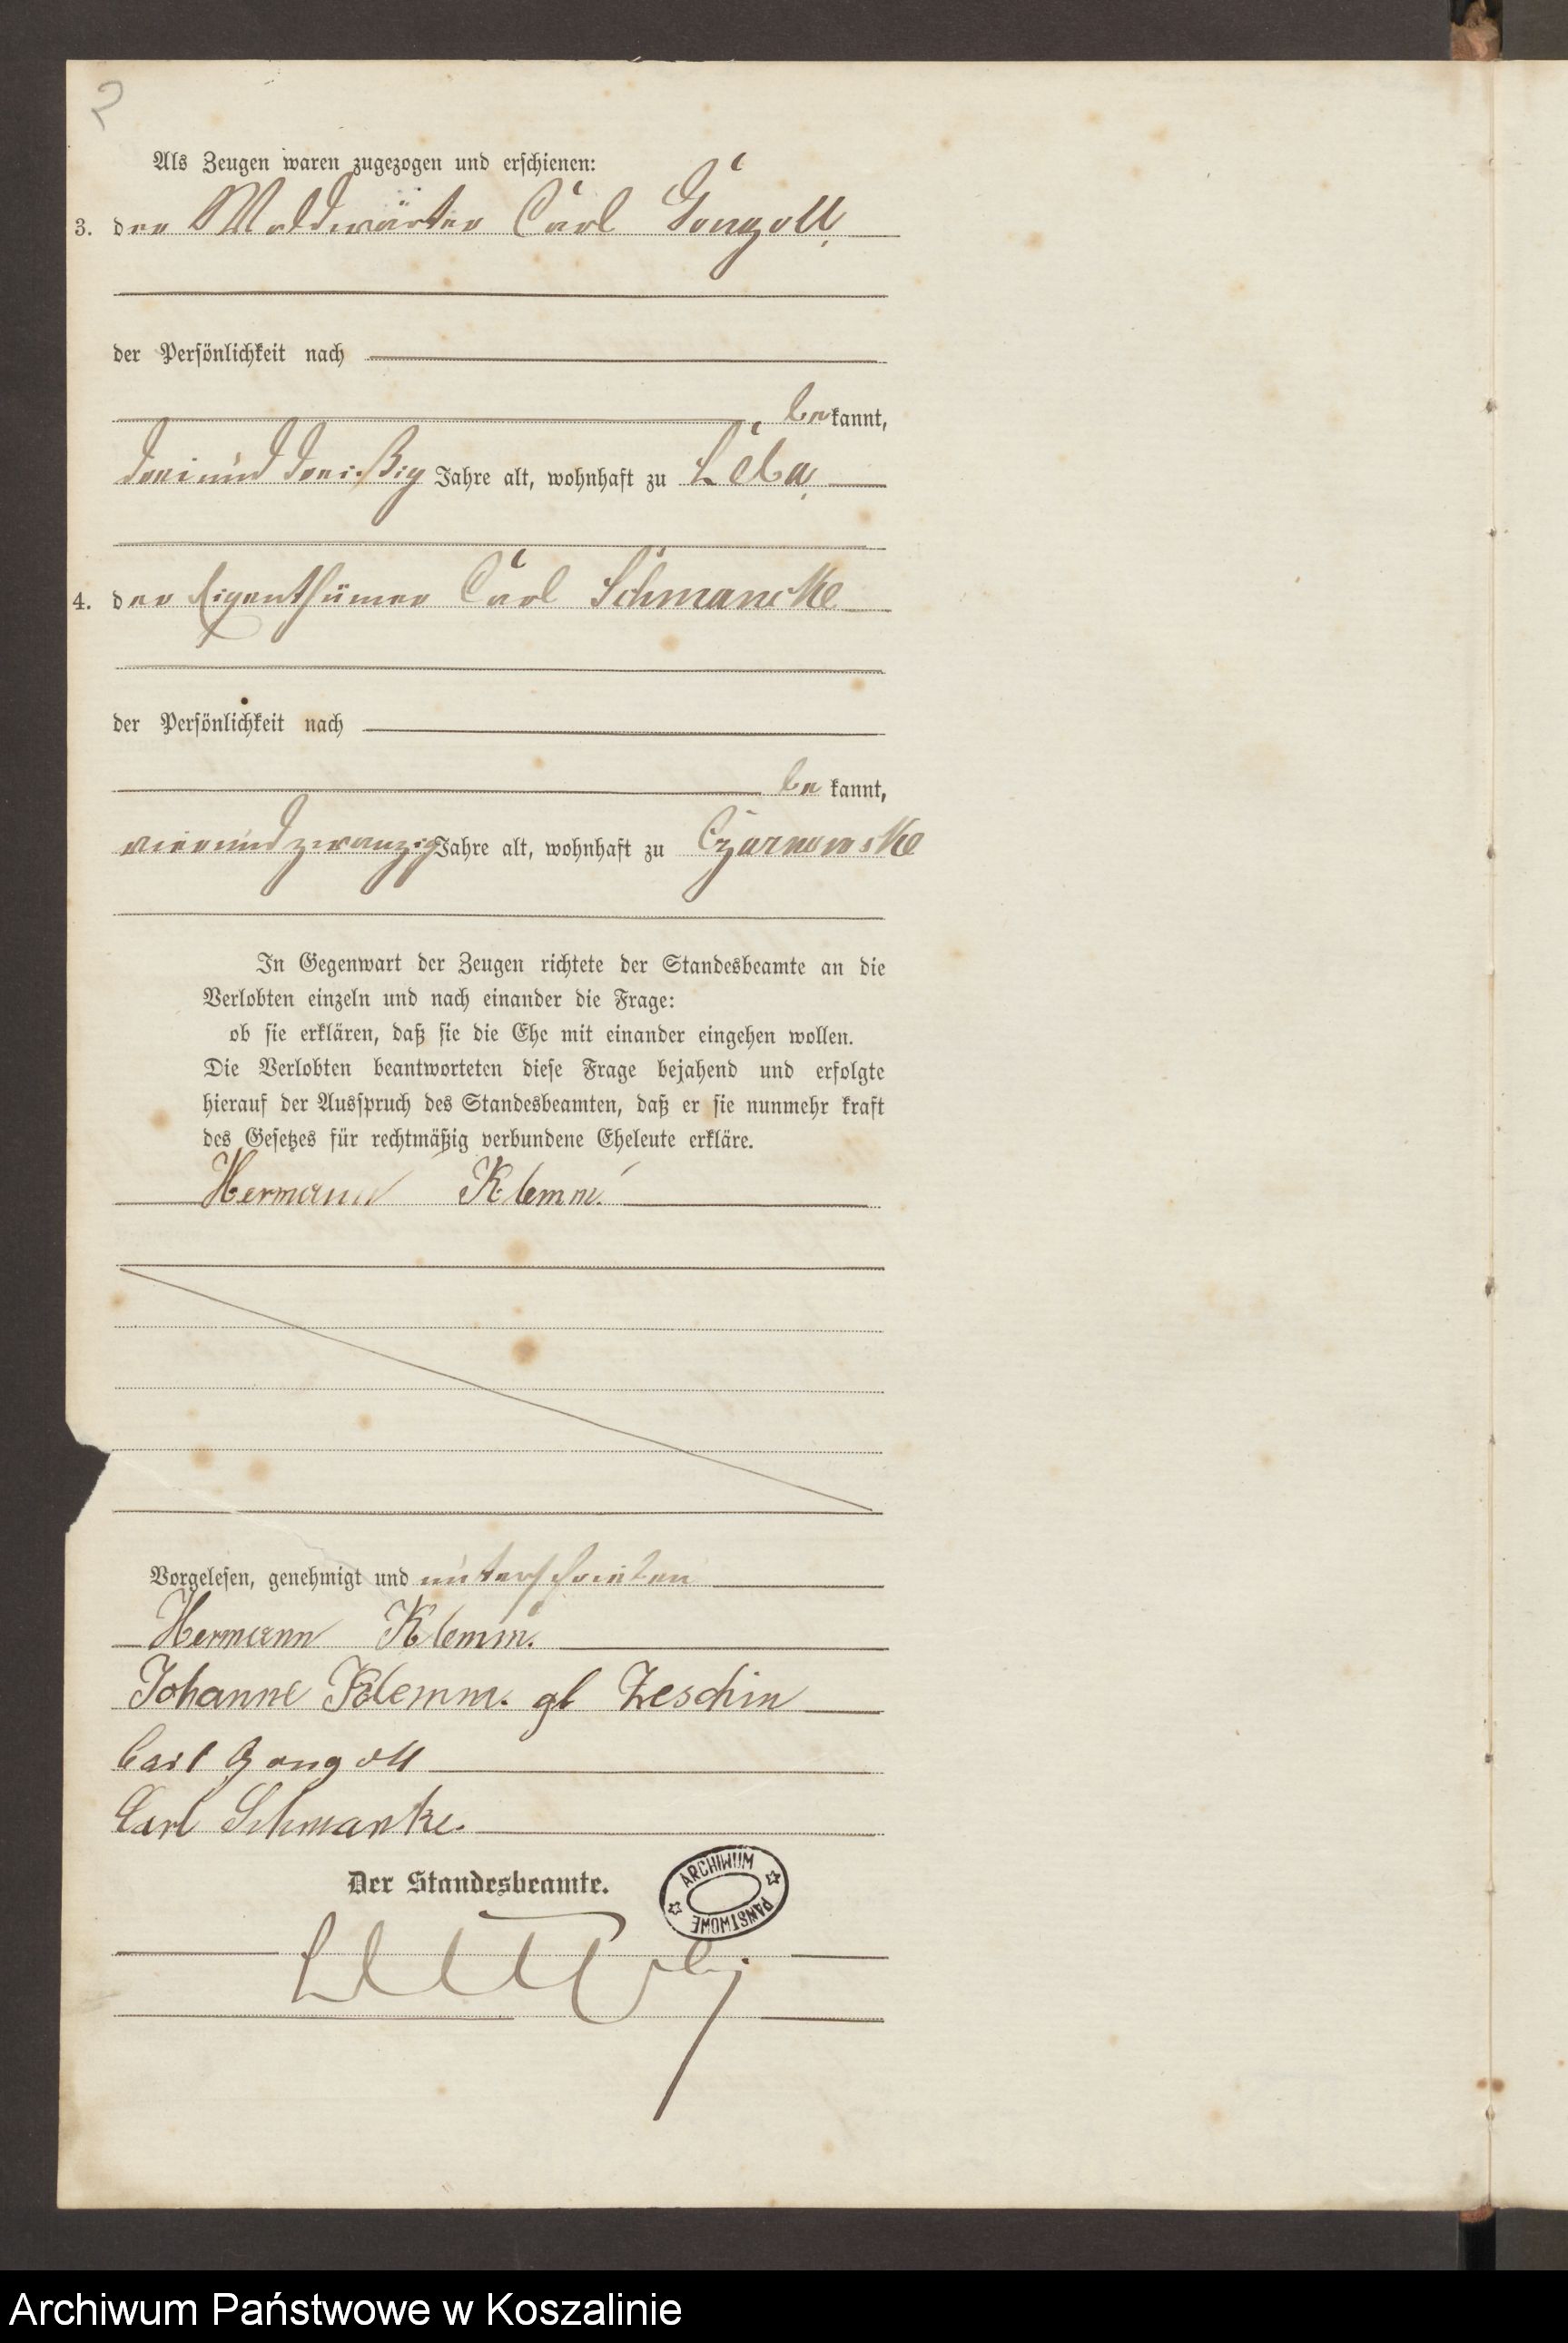 2
Als Zeugen waren zugezogen und erschienen:
3. der Waldwärter Carl Gongoll,
der Persönlichkeit nach
bekannt,
dreiunddreißig Jahre alt, wohnhaft zu Leba,
4. der Eigenthümer Carl Schmancke
der Persönlichkeit nach
be kannt,
vierundzwanzig Jahre alt, wohnhaft zu Czarnowske
In Gegenwart der Zeugen richtete der Standesbeamte an die
Verlobten einzeln und nach einander die Frage:
ob sie erklären, daß sie die Ehe mit einander eingehen wollen.
Die Verlobten beantworteten diese Frage bejahend und erfolgte
hierauf der Ausspruch des Standesbeamten, daß er sie nunmehr kraft
des Gesetzes für rechtmäßig verbundene Eheleute erkläre.
Hermann Klemm.
Vorgelesen, genehmigt und unterschrieben
Hermann Klemm.
Johanne Klemm. gb Zeschin
Carl Gongoll
Carl Schmanke.
Der Standesbeamte.
ARCHIWUM PAŃSTWOWE
Archiwum Państwowe w Koszalinie